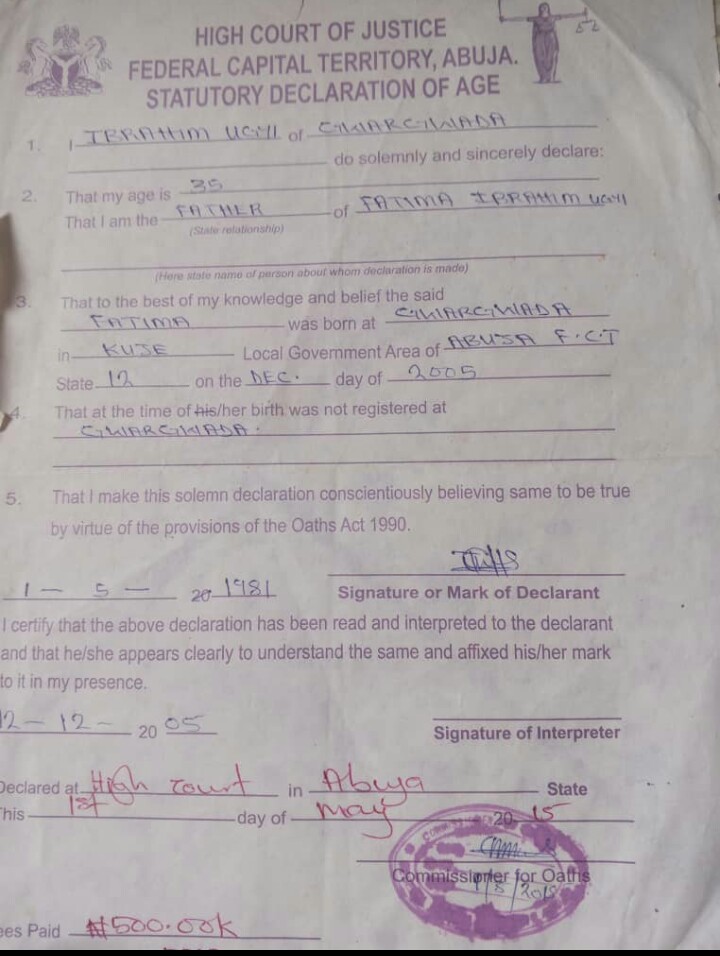 52
HIGH COURT OF JUSTICE
FEDERAL CAPITAL TERRITORY, ABUJA.
STATUTORY DECLARATION OF AGE
1. I IBRAHIM UGYI of GWARGWADA
do solemnly and sincerely declare:
2. That my age is 35
That I am the FATHER of FATIMA IBRAHIM UGYI
(State relationship)
(Here state name of person about whom declaration is made)
3. That to the best of my knowledge and belief the said
FATIMA was born at GWARGWADA
in KUJE Local Government Area of ABUJA F.C.T
State 12 on the DEC. day of 2005
4. That at the time of his/her birth was not registered at
GWARGWADA.
5. That I make this solemn declaration conscientiously believing same to be true
by virtue of the provisions of the Oaths Act 1990.
1 - 5 - 20 1981 Signature or Mark of Declarant
I certify that the above declaration has been read and interpreted to the declarant
and that he/she appears clearly to understand the same and affixed his/her mark
to it in my presence.
12 - 12 - 20 05 Signature of Interpreter
Declared at High Court in Abuja State
This 1st day of May 20 15
Commissioner for Oaths
Fees Paid ₦500.00K